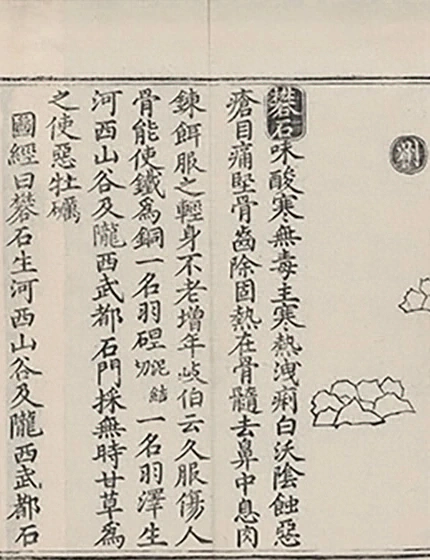 礬石味酸寒無毒主寒熱洩痢白沃陰蝕惡
瘡目痛堅骨齒除固熱在骨髓去鼻中息肉
鍊餌服之輕身不老增年岐伯云久服傷人
骨能使鐵為銅一名羽泥結切一名羽澤生
河西山谷及隴西武都石門採無時甘草為
之使惡牡蠣
圖經曰礬石生河西山谷及隴西武都石